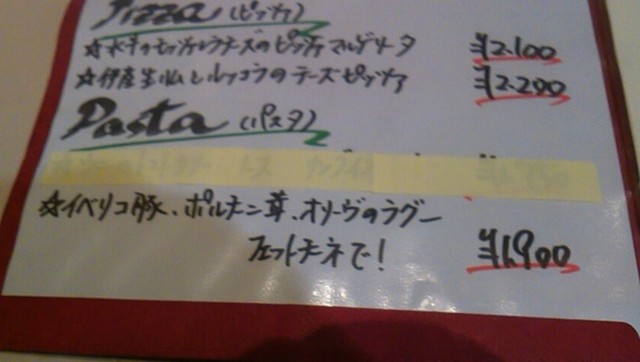 Pizza (ピッツァ)
☆水牛のモッツァレラチーズのピッツァ マルゲリータ ¥2.100
☆伊産生ハムとルッコラのチーズピッツァ ¥2.200
Pasta (パスタ)
☆イベリコ豚、ポルチーニ茸、オリーヴのラグー
フェットチーネで! ¥1.900